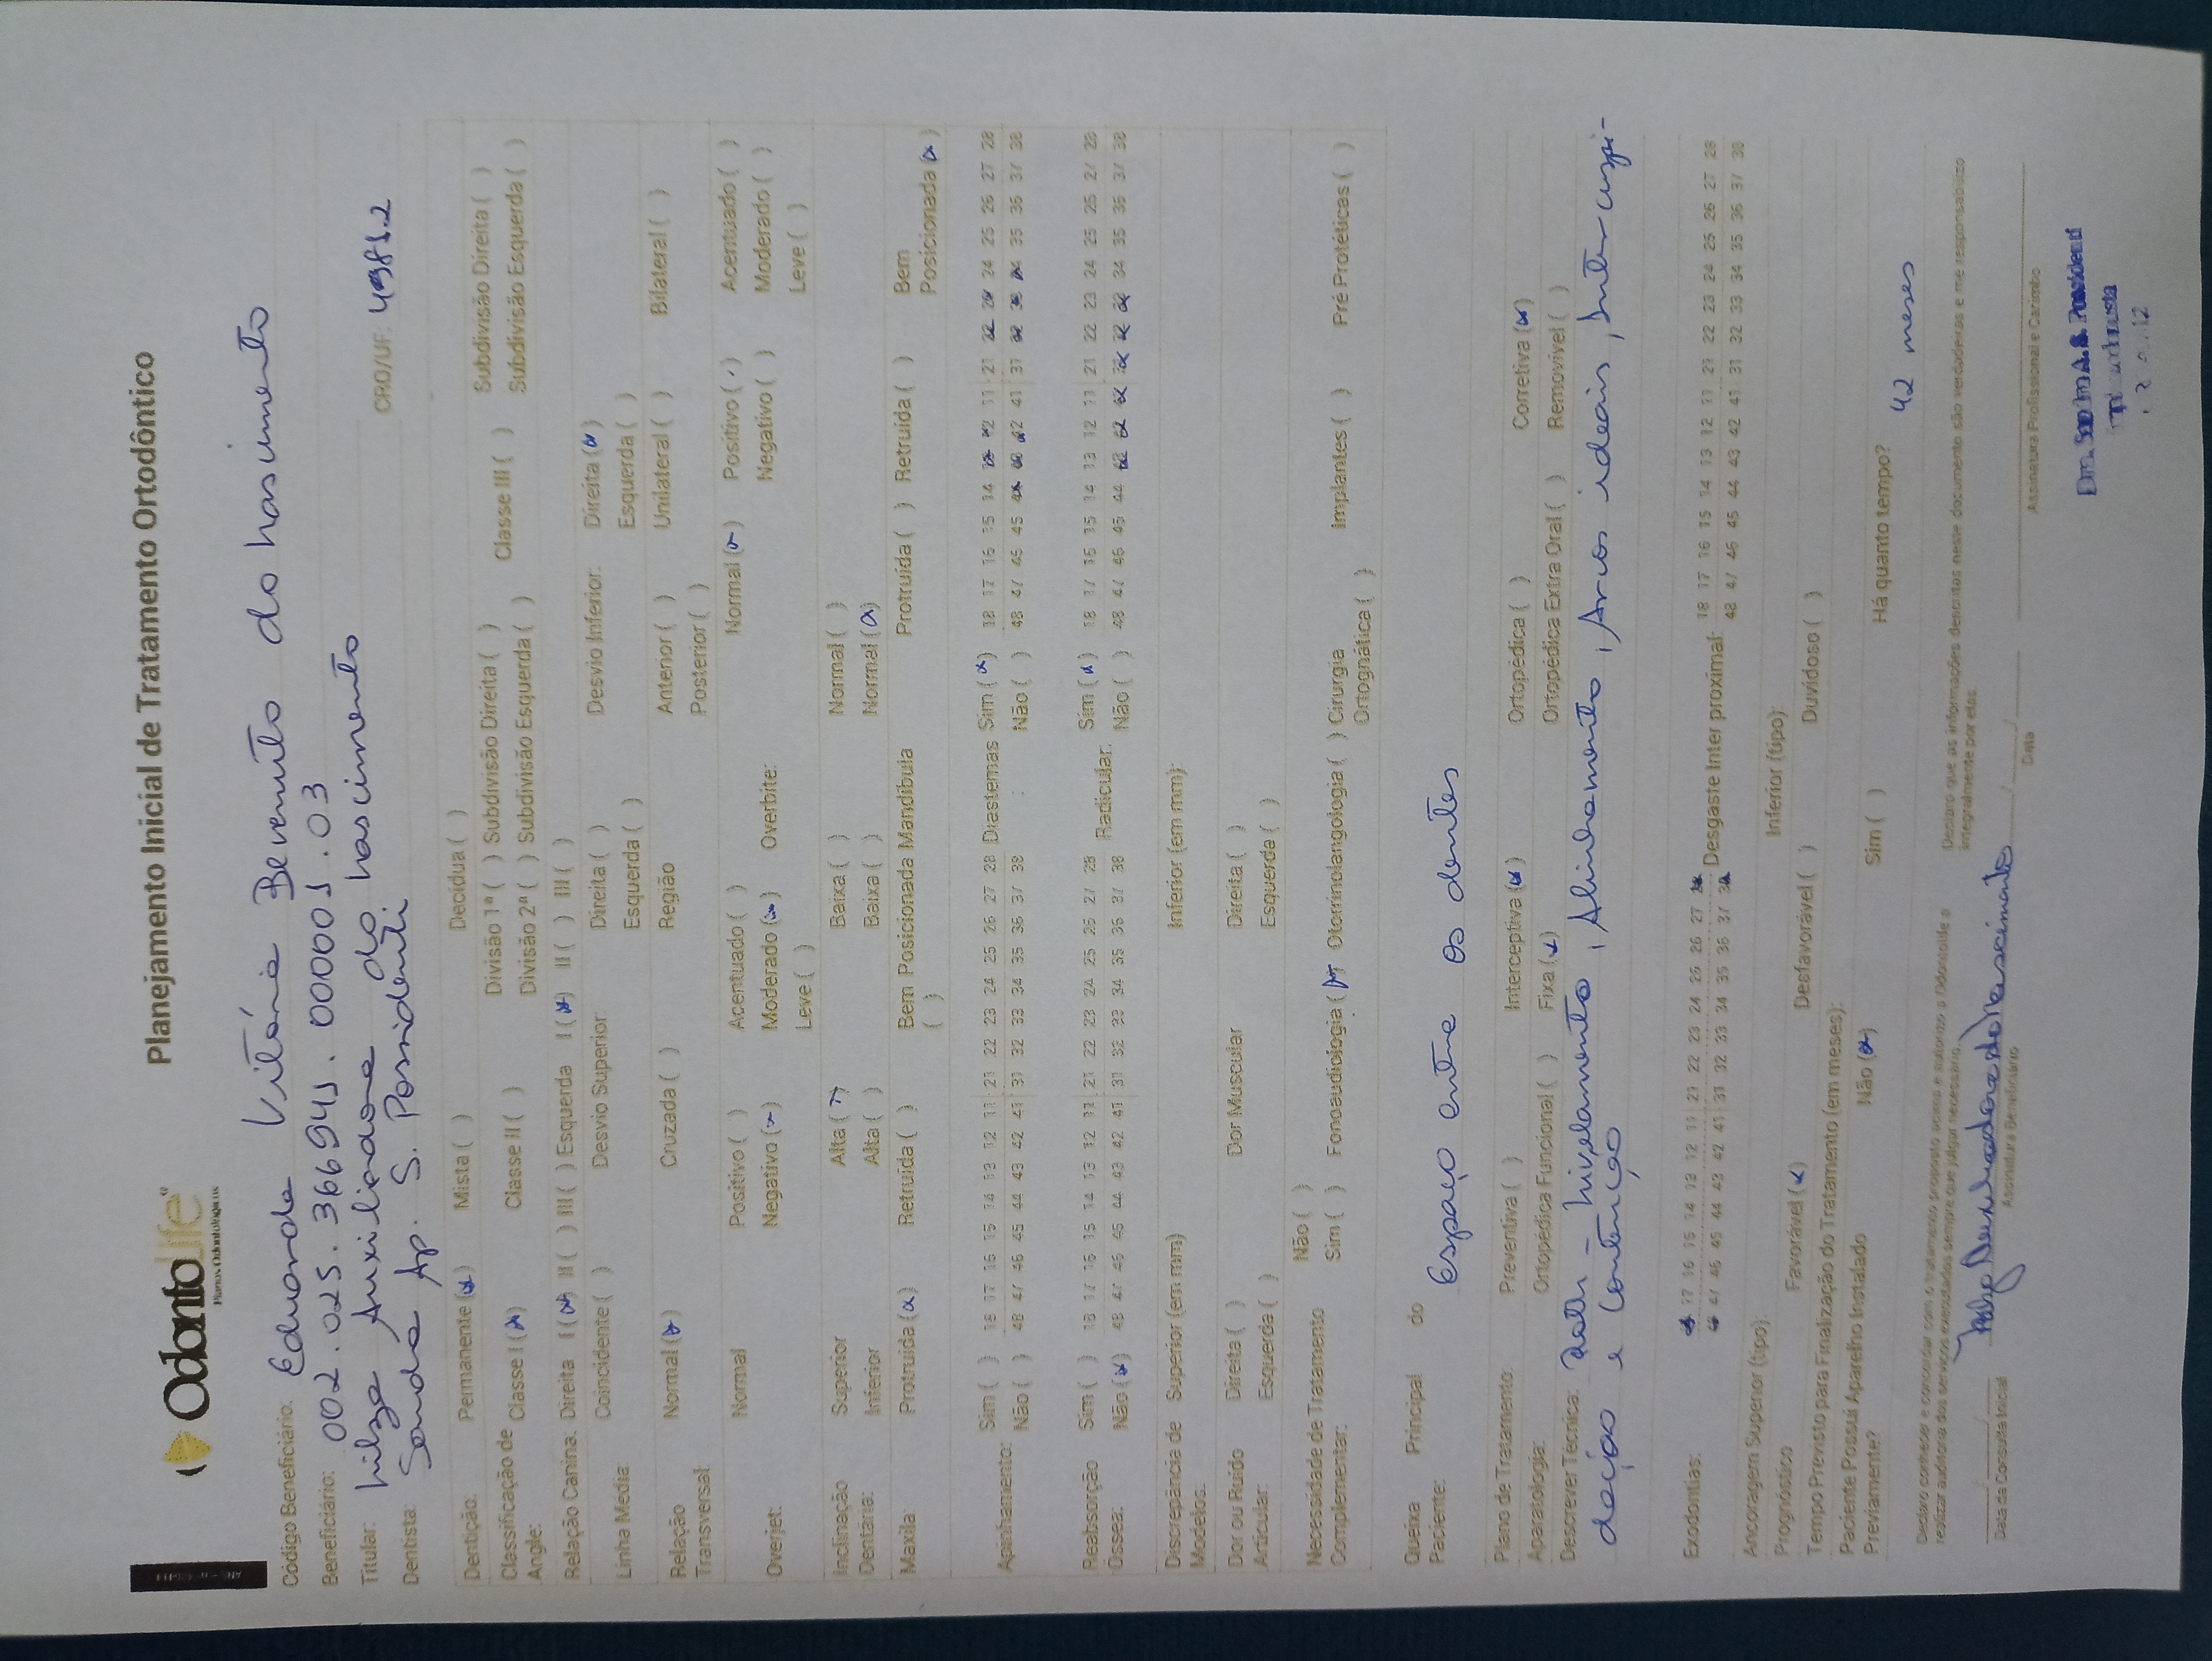 OdontoLife
Planos Odontológicos
Planejamento Inicial de Tratamento Ortodôntico
Código Beneficiário: Eduarda Vitória Benvuto do nascimento
Beneficiário: 002.025.366941.000001.03
Titular: nilza Auxiliadora do nascimento
Dentista: Sandra Ap. S. Possidenti CRO/UF: 49812
Dentição: Permanente (x) Mista ( ) Decídua ( )
Classificação de Angle: Classe I (x) Classe II ( ) Divisão 1ª ( ) Subdivisão Direita ( ) Classe III ( ) Subdivisão Direita ( )
Divisão 2ª ( ) Subdivisão Esquerda ( ) Subdivisão Esquerda ( )
Relação Canina: Direita I (x) II ( ) III ( ) Esquerda I (x) II ( ) III ( )
Linha Media: Coincidente ( ) Desvio Superior: Direita ( ) Desvio Inferior: Direita (x)
Esquerda ( ) Esquerda ( )
Relação Transversal Normal (x) Cruzada ( ) Região Anterior ( ) Unilateral ( ) Bilateral ( )
Posterior ( )
Overjet: Normal Positivo ( ) Acentuado ( ) Overbite: Normal (x) Positivo ( ) Acentuado ( )
Negativo (x) Moderado (x) Negativo ( ) Moderado ( )
Leve ( ) Leve ( )
Inclinação Superior Alta (x) Baixa ( ) Normal ( )
Dentária: Inferior Alta ( ) Baixa ( ) Normal (x)
Maxila: Protruída (x) Retruída ( ) Bem Posicionada ( ) Mandíbula Protruída ( ) Retruída ( ) Bem Posicionada (x)
Apinhamento: Sim ( ) 18 17 16 15 14 13 12 11 21 22 23 24 25 26 27 28 Diastemas: Sim (x) 18 17 16 15 14 13 12 11 21 22 23 24 25 26 27 28
Não ( ) 48 47 46 45 44 43 42 41 31 32 33 34 35 36 37 38 Não ( ) 48 47 46 45 44 43 42 41 31 32 33 34 35 36 37 38
Reabsorção Sim ( ) 18 17 16 15 14 13 12 11 21 22 23 24 25 26 27 28 Radicular: Sim (x) 18 17 16 15 14 13 12 11 21 22 23 24 25 26 27 28
Óssea: Não (x) 48 47 46 45 44 43 42 41 31 32 33 34 35 36 37 38 Não ( ) 48 47 46 45 44 43 42 41 31 32 33 34 35 36 37 38
Discrepância de Modelos: Superior (em mm) Inferior (em mm):
Dor ou Ruído Direita ( ) Dor Muscular Direita ( )
Articular: Esquerda ( ) Esquerda ( )
Necessidade de Tratamento Não ( )
Complementar: Sim ( ) Fonoaudiologia (x) Otorrinolangologia ( ) Cirurgia Ortognática ( ) Implantes ( ) Pré Protéticas ( )
Queixa Principal do Paciente: Espaço entre os dentes
Plano de Tratamento: Preventiva ( ) Interceptiva (x) Ortopédica ( ) Corretiva (x)
Aparatologia: Ortopédica Funcional ( ) Fixa (x) Ortopédica Extra Oral ( ) Removível ( )
Descrever Técnica: Roth - nivelamento, Alinhamento, Arcos ideais, Intercuspi-
dação e contenção
Exodontias: 18 17 16 15 14 13 12 11 21 22 23 24 25 26 27 28 Desgaste Inter proximal: 18 17 16 15 14 13 12 11 21 22 23 24 25 26 27 28
48 47 46 45 44 43 42 41 31 32 33 34 35 36 37 38 48 47 46 45 44 43 42 41 31 32 33 34 35 36 37 38
Ancoragem Superior (tipo): Inferior (tipo):
Prognóstico Favorável (x) Desfavorável ( ) Duvidoso ( )
Tempo Previsto para Finalização do Tratamento (em meses): 42 meses
Paciente Possui Aparelho Instalado Previamente? Não (x) Sim ( ) Há quanto tempo?
Declaro conhecer e concordar com o tratamento proposto acima e autorizo a Odontolife a
realizar auditoria dos serviços executados sempre que julgar necessário.
Declaro que as informações descritas nesse documento são verdadeiras e me responsabilizo
integralmente por elas.
Data da Consulta Inicial Assinatura Beneficiário Data Assinatura Profissional e Carimbo